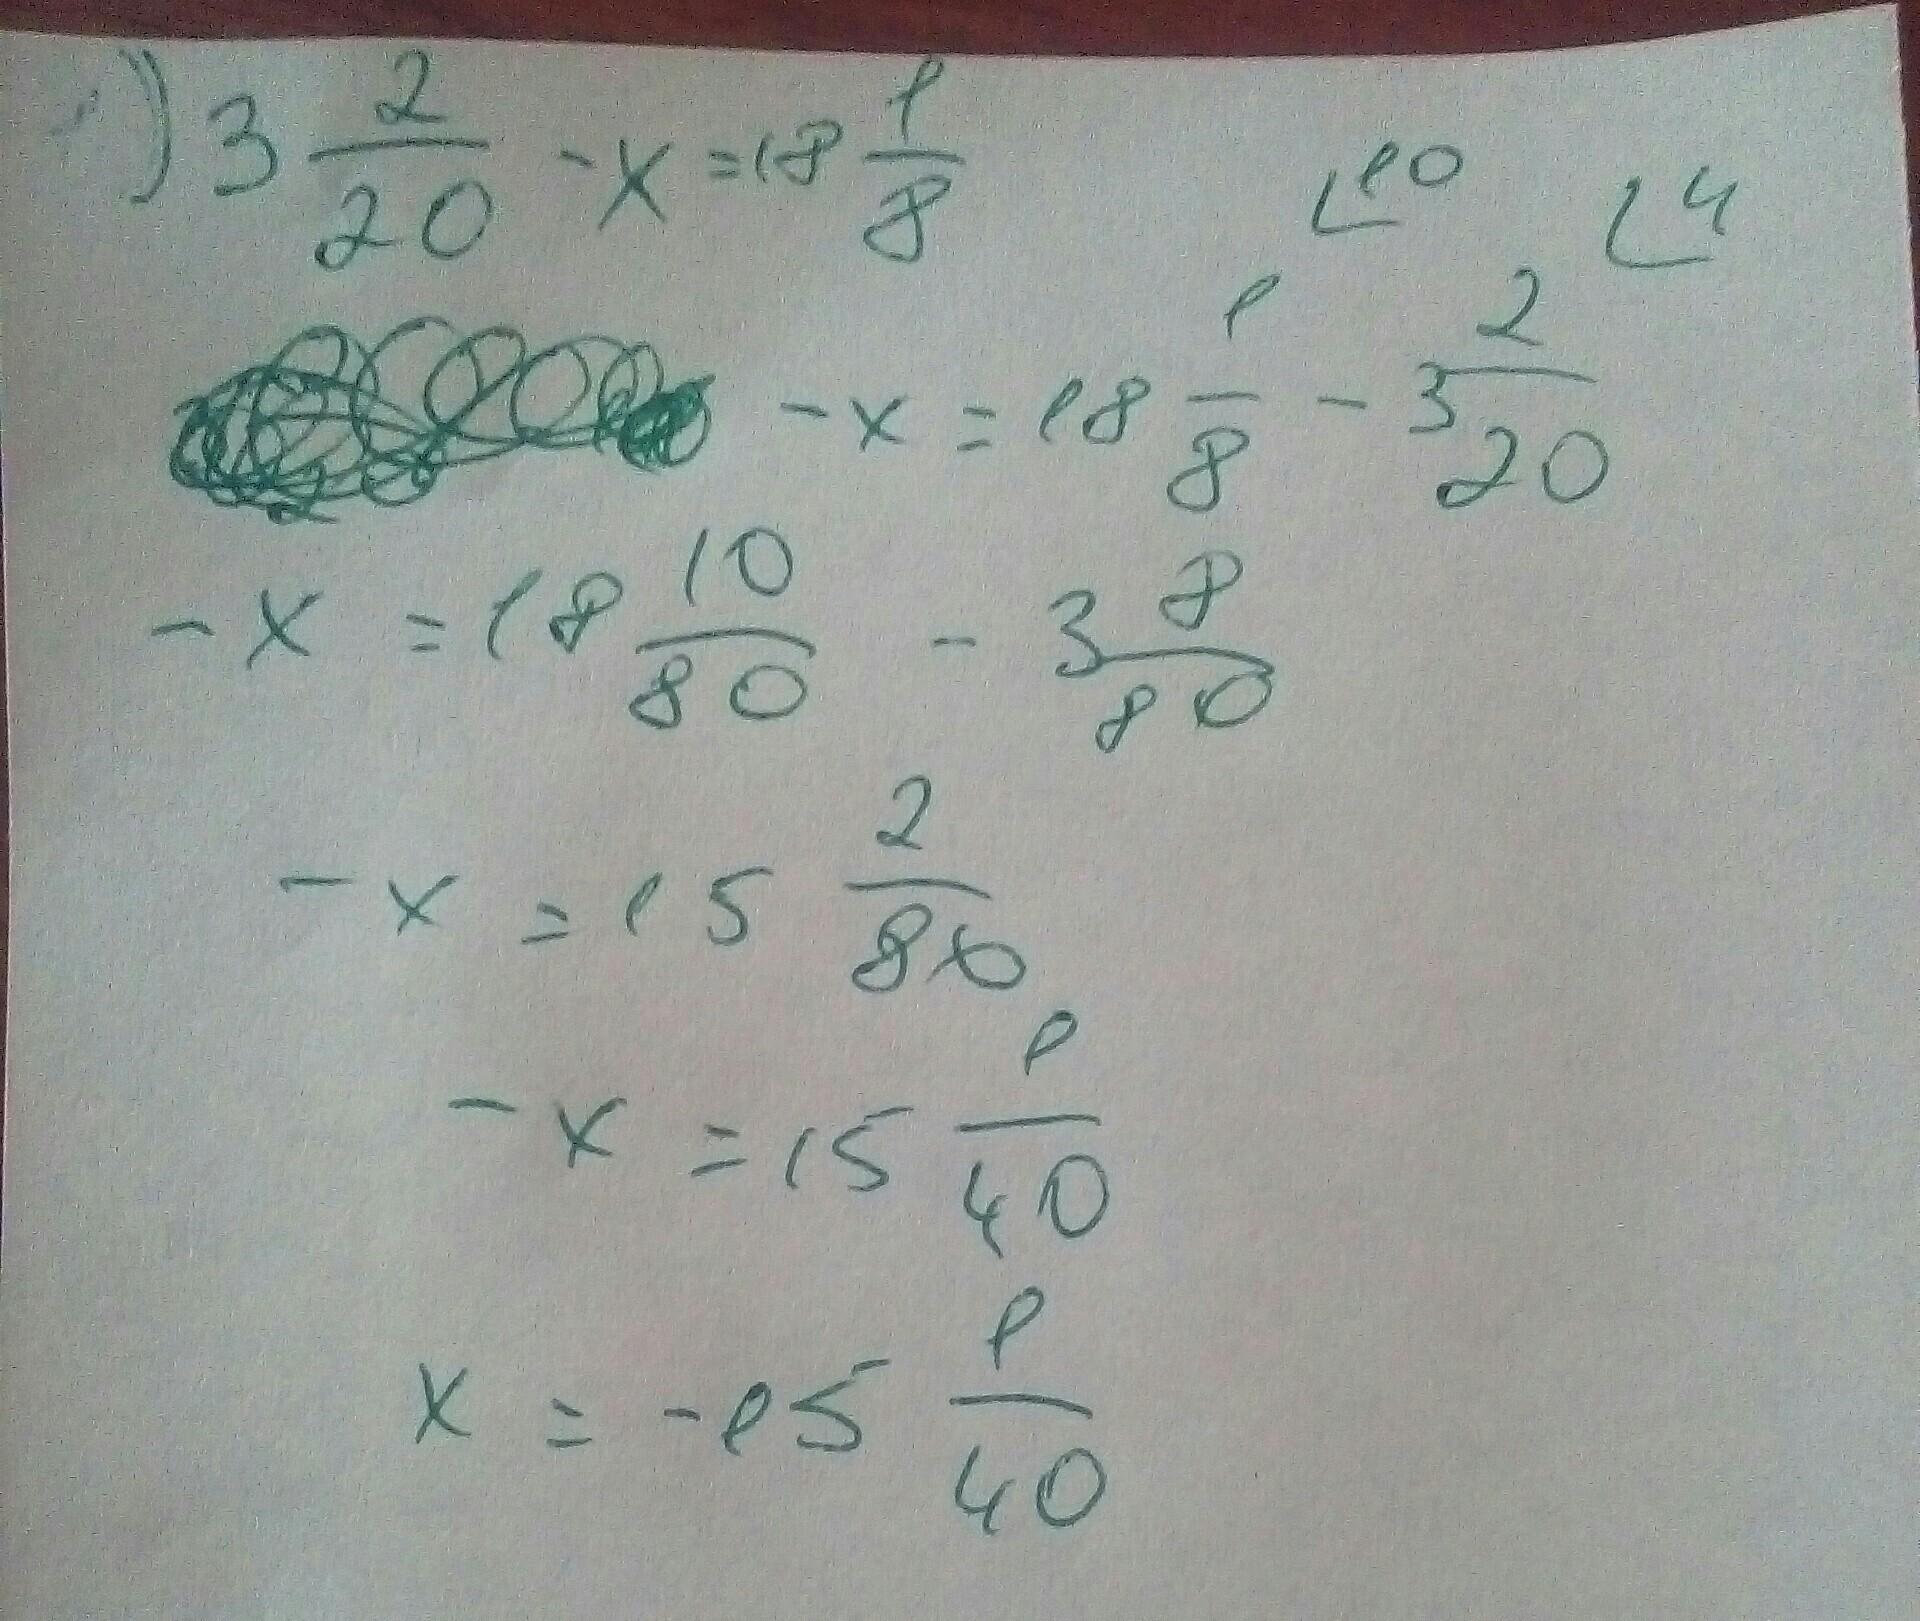 ) 3 2/20 - x = 18 1/8
⌊10 ⌊4
- x = 18 1/8 - 3 2/20
- x = 18 10/80 - 3 8/80
- x = 15 2/80
- x = 15 1/40
x = - 15 1/40